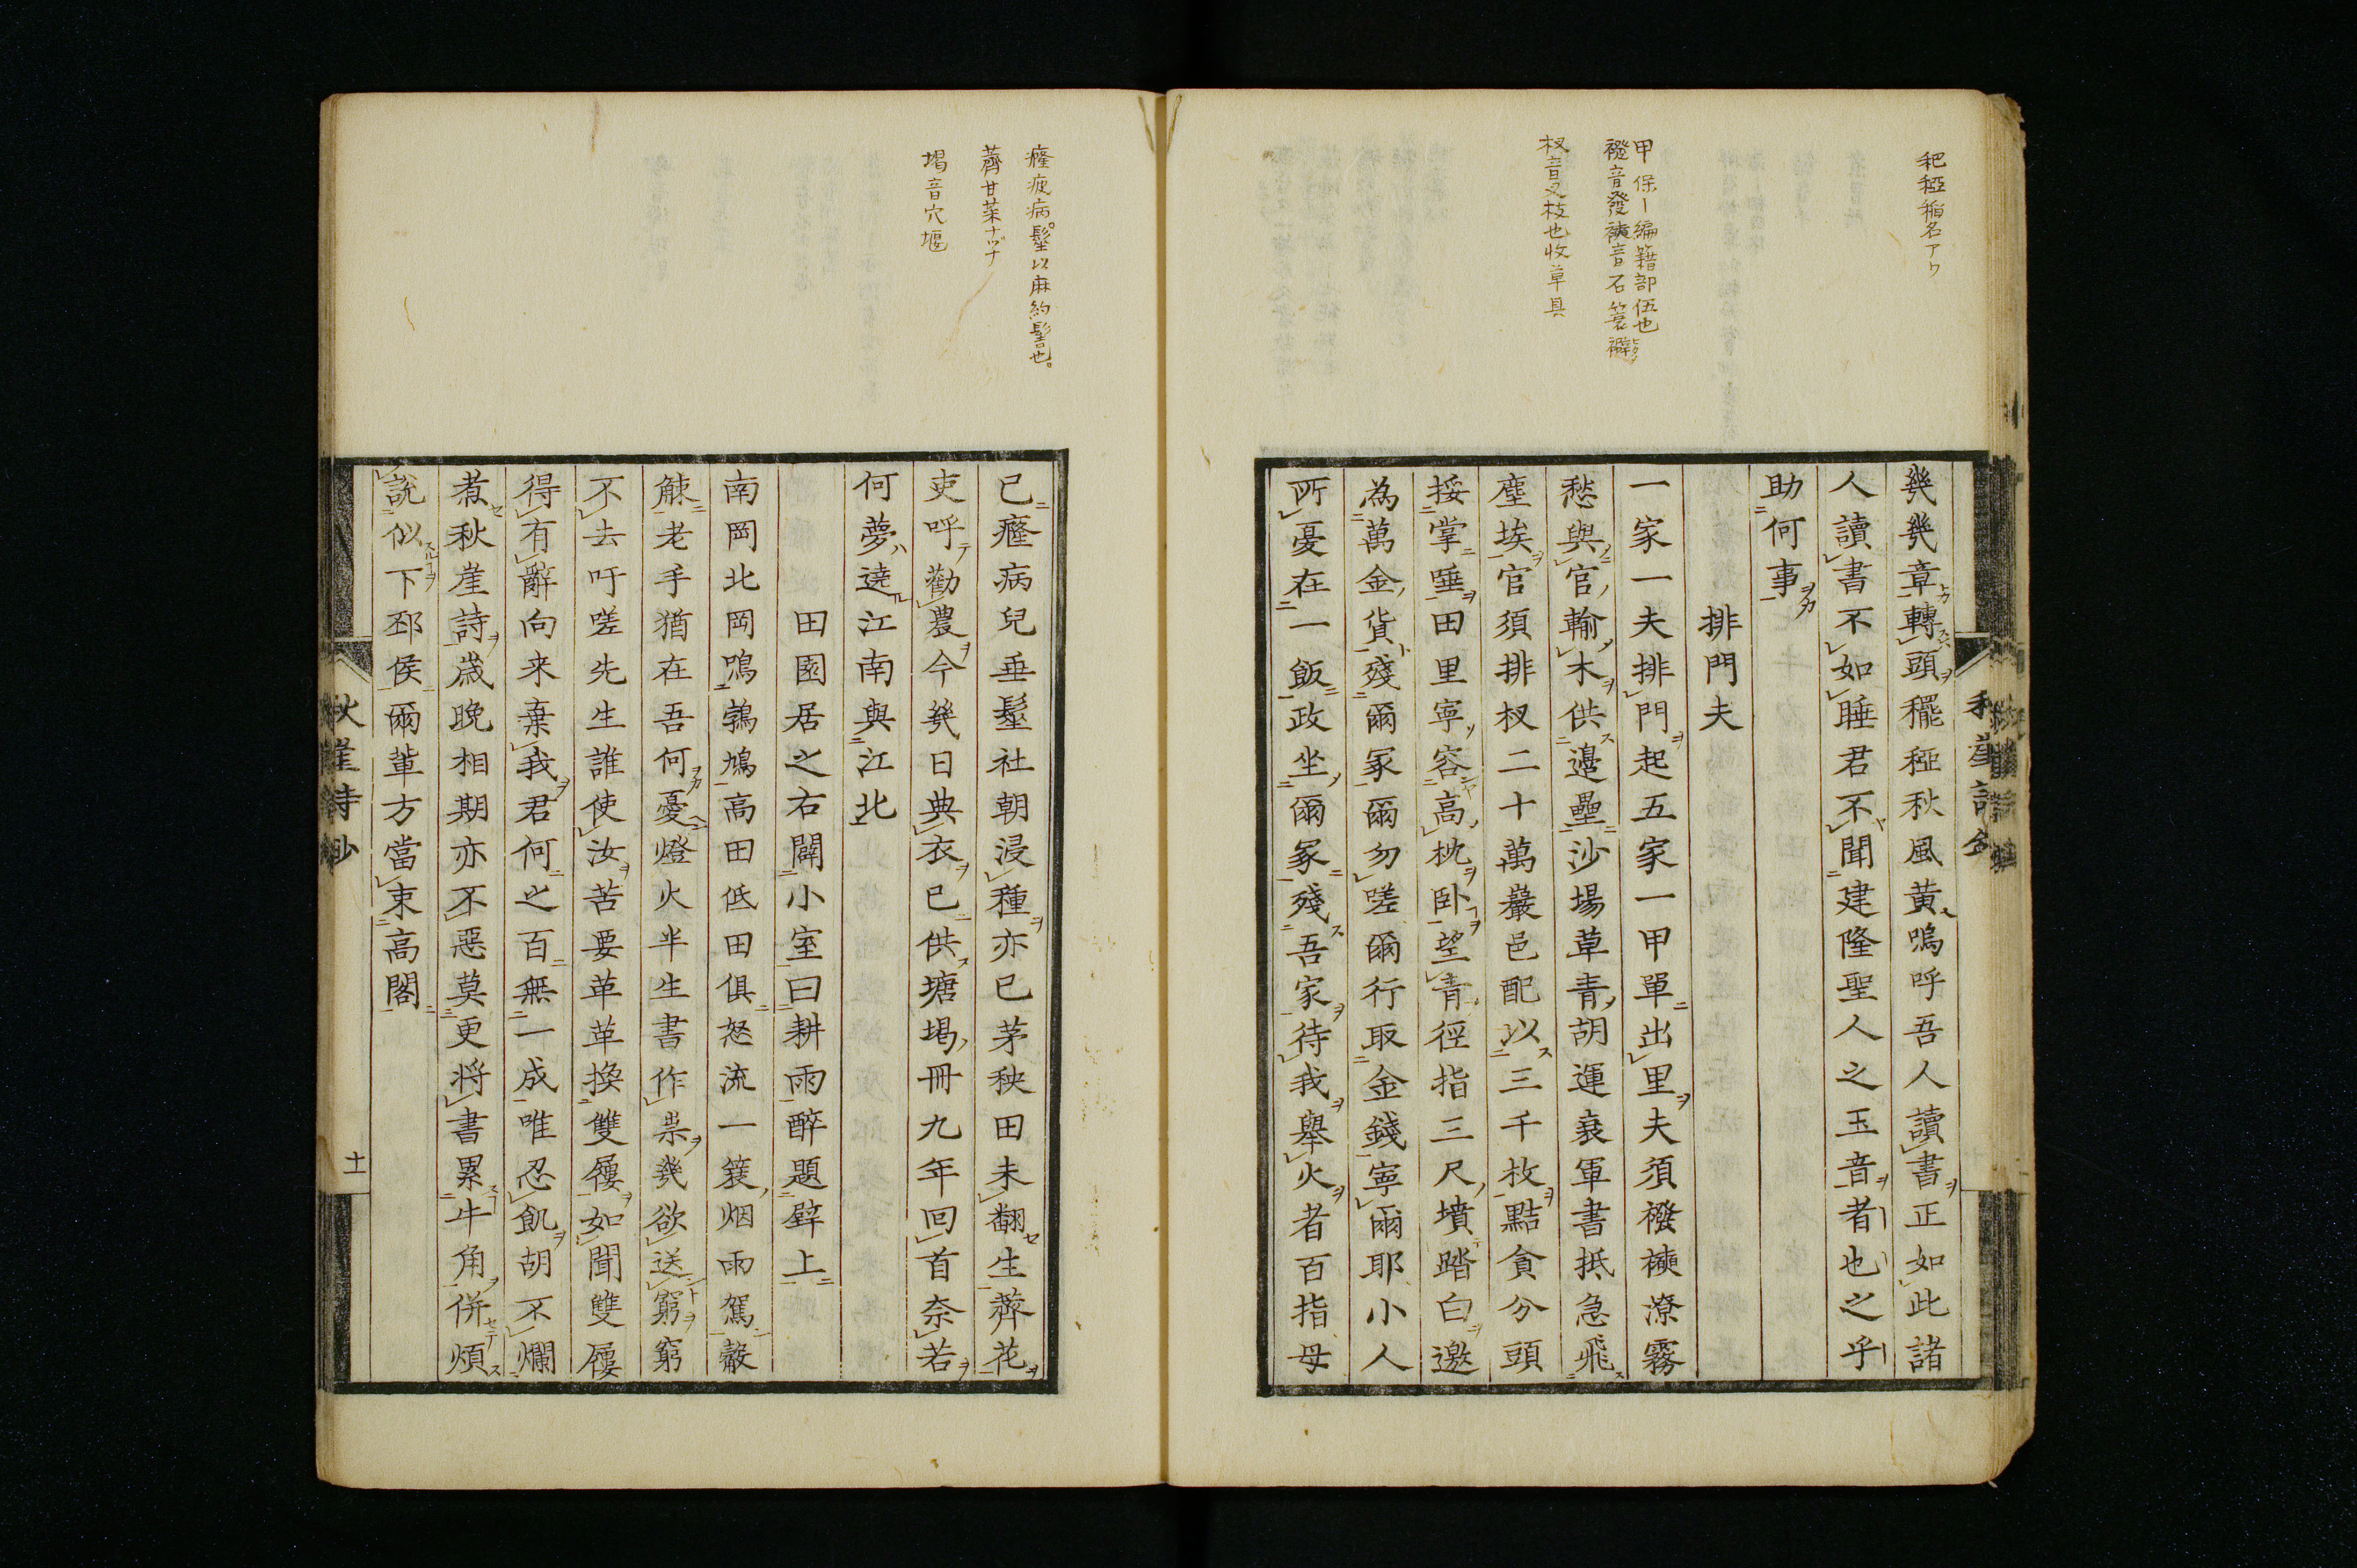 䄻稏稻名アワ
甲 保｜編籍部伍也
襏音發襫音石簑襏
杈音叉枝也收草具
幾幾章轉頭䆉稏秋風黃嗚呼吾人讀書正如此諸
人讀書不如睡君不聞建隆聖人之玉音者也之乎
助何事
排門夫
一家一夫排門起五家一甲單出里夫須襏襫潦霧
愁與官輸木供邊壘沙場草青胡運衰軍書抵急飛
塵埃官須排杈二十萬巖邑配以三千枚點貪分頭
挼掌唾田里寧容高枕卧望青徑指三尺墳踏白邀
為萬金貨殘爾冢爾勿嗟爾行取金錢寧爾耶小人
所憂在一飯政坐爾冢殘吾家待我舉火者百指母
癃疲病。髽以麻約髻也。
薺甘菜ナヅナ
堨音穴堰
已癃病兒垂髽社朝浸種亦已茅秧田未翻生薺花
吏呼勸農今幾日典衣已供塘堨冊九年回首奈若
何夢遶江南與江北
田園居之右闢小室曰耕雨醉題壁上
南岡北岡鳴鵓鳩高田低田俱怒流一簑烟雨駕觳
觫老手猶在吾何憂燈火半生書作祟幾欲送窮窮
不去吁嗟先生誰使汝苦要革革換雙屨如聞雙屨
得有辭向来棄我君何之百無一成唯忍飢胡不爛
煮秋崖詩歳晩相期亦不惡莫更将書累牛角併煩
說似下邳侯爾輩方當束高閣
秋崖詩鈔
十一